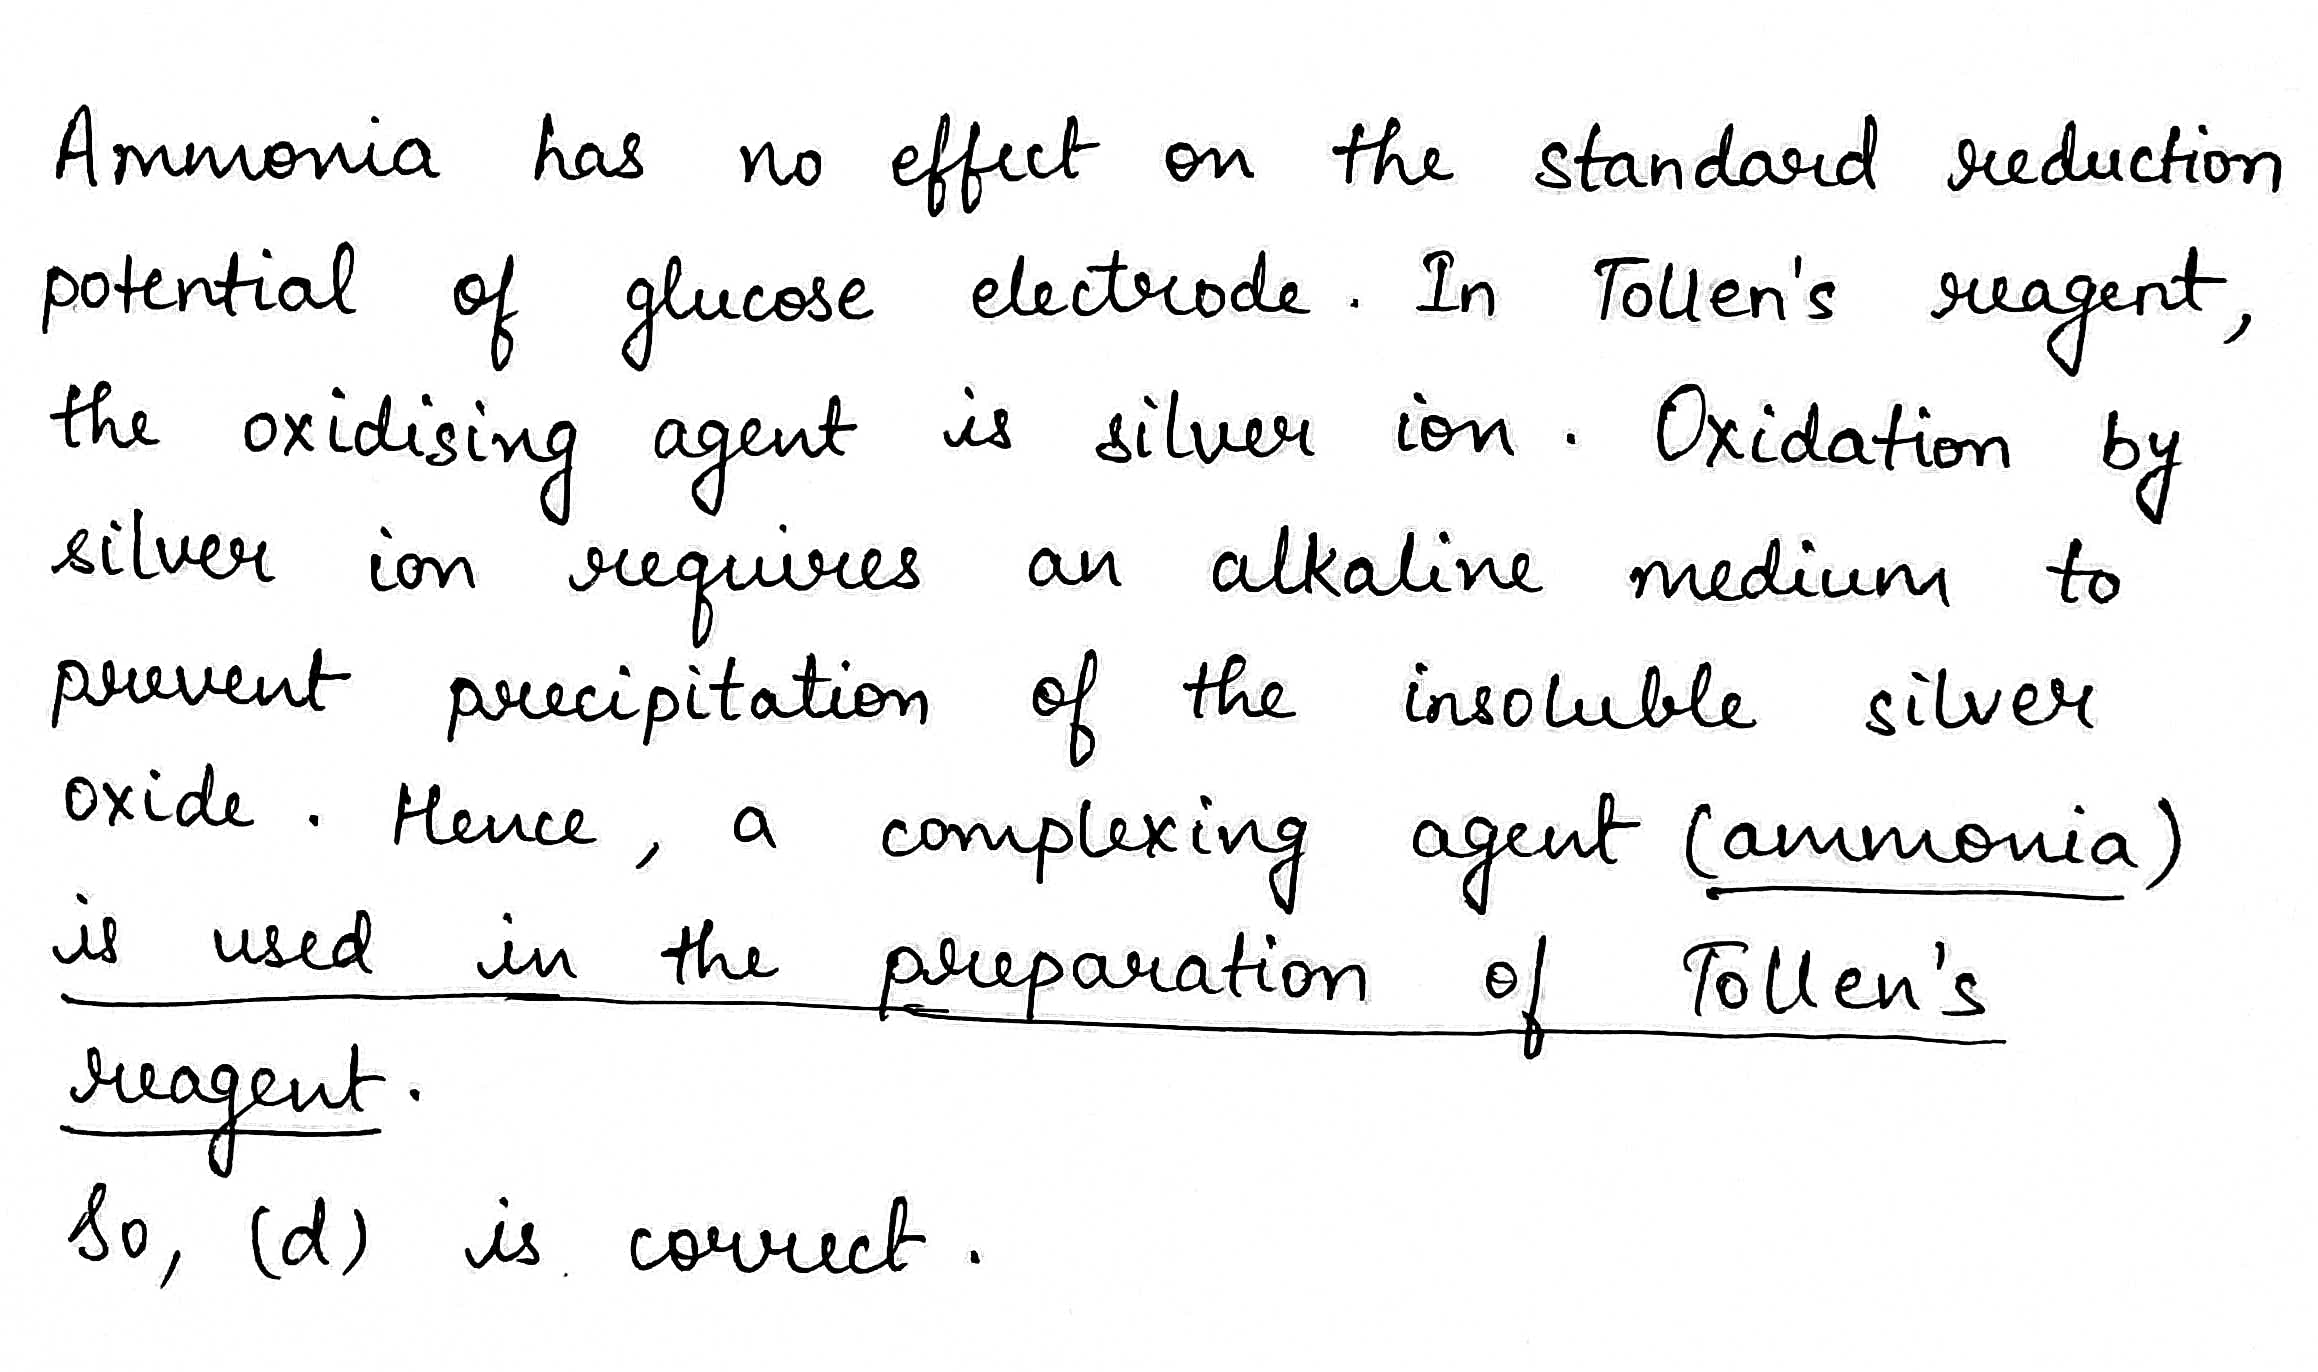 Ammonia has no effect on the standard reduction
potential of glucose electrode. In Tollen's reagent,
the oxidising agent is silver ion. Oxidation by
silver ion requires an alkaline medium to
prevent precipitation of the insoluble silver
oxide. Hence, a complexing agent (ammonia)
is used in the preparation of Tollen's
reagent.
So, (d) is correct.